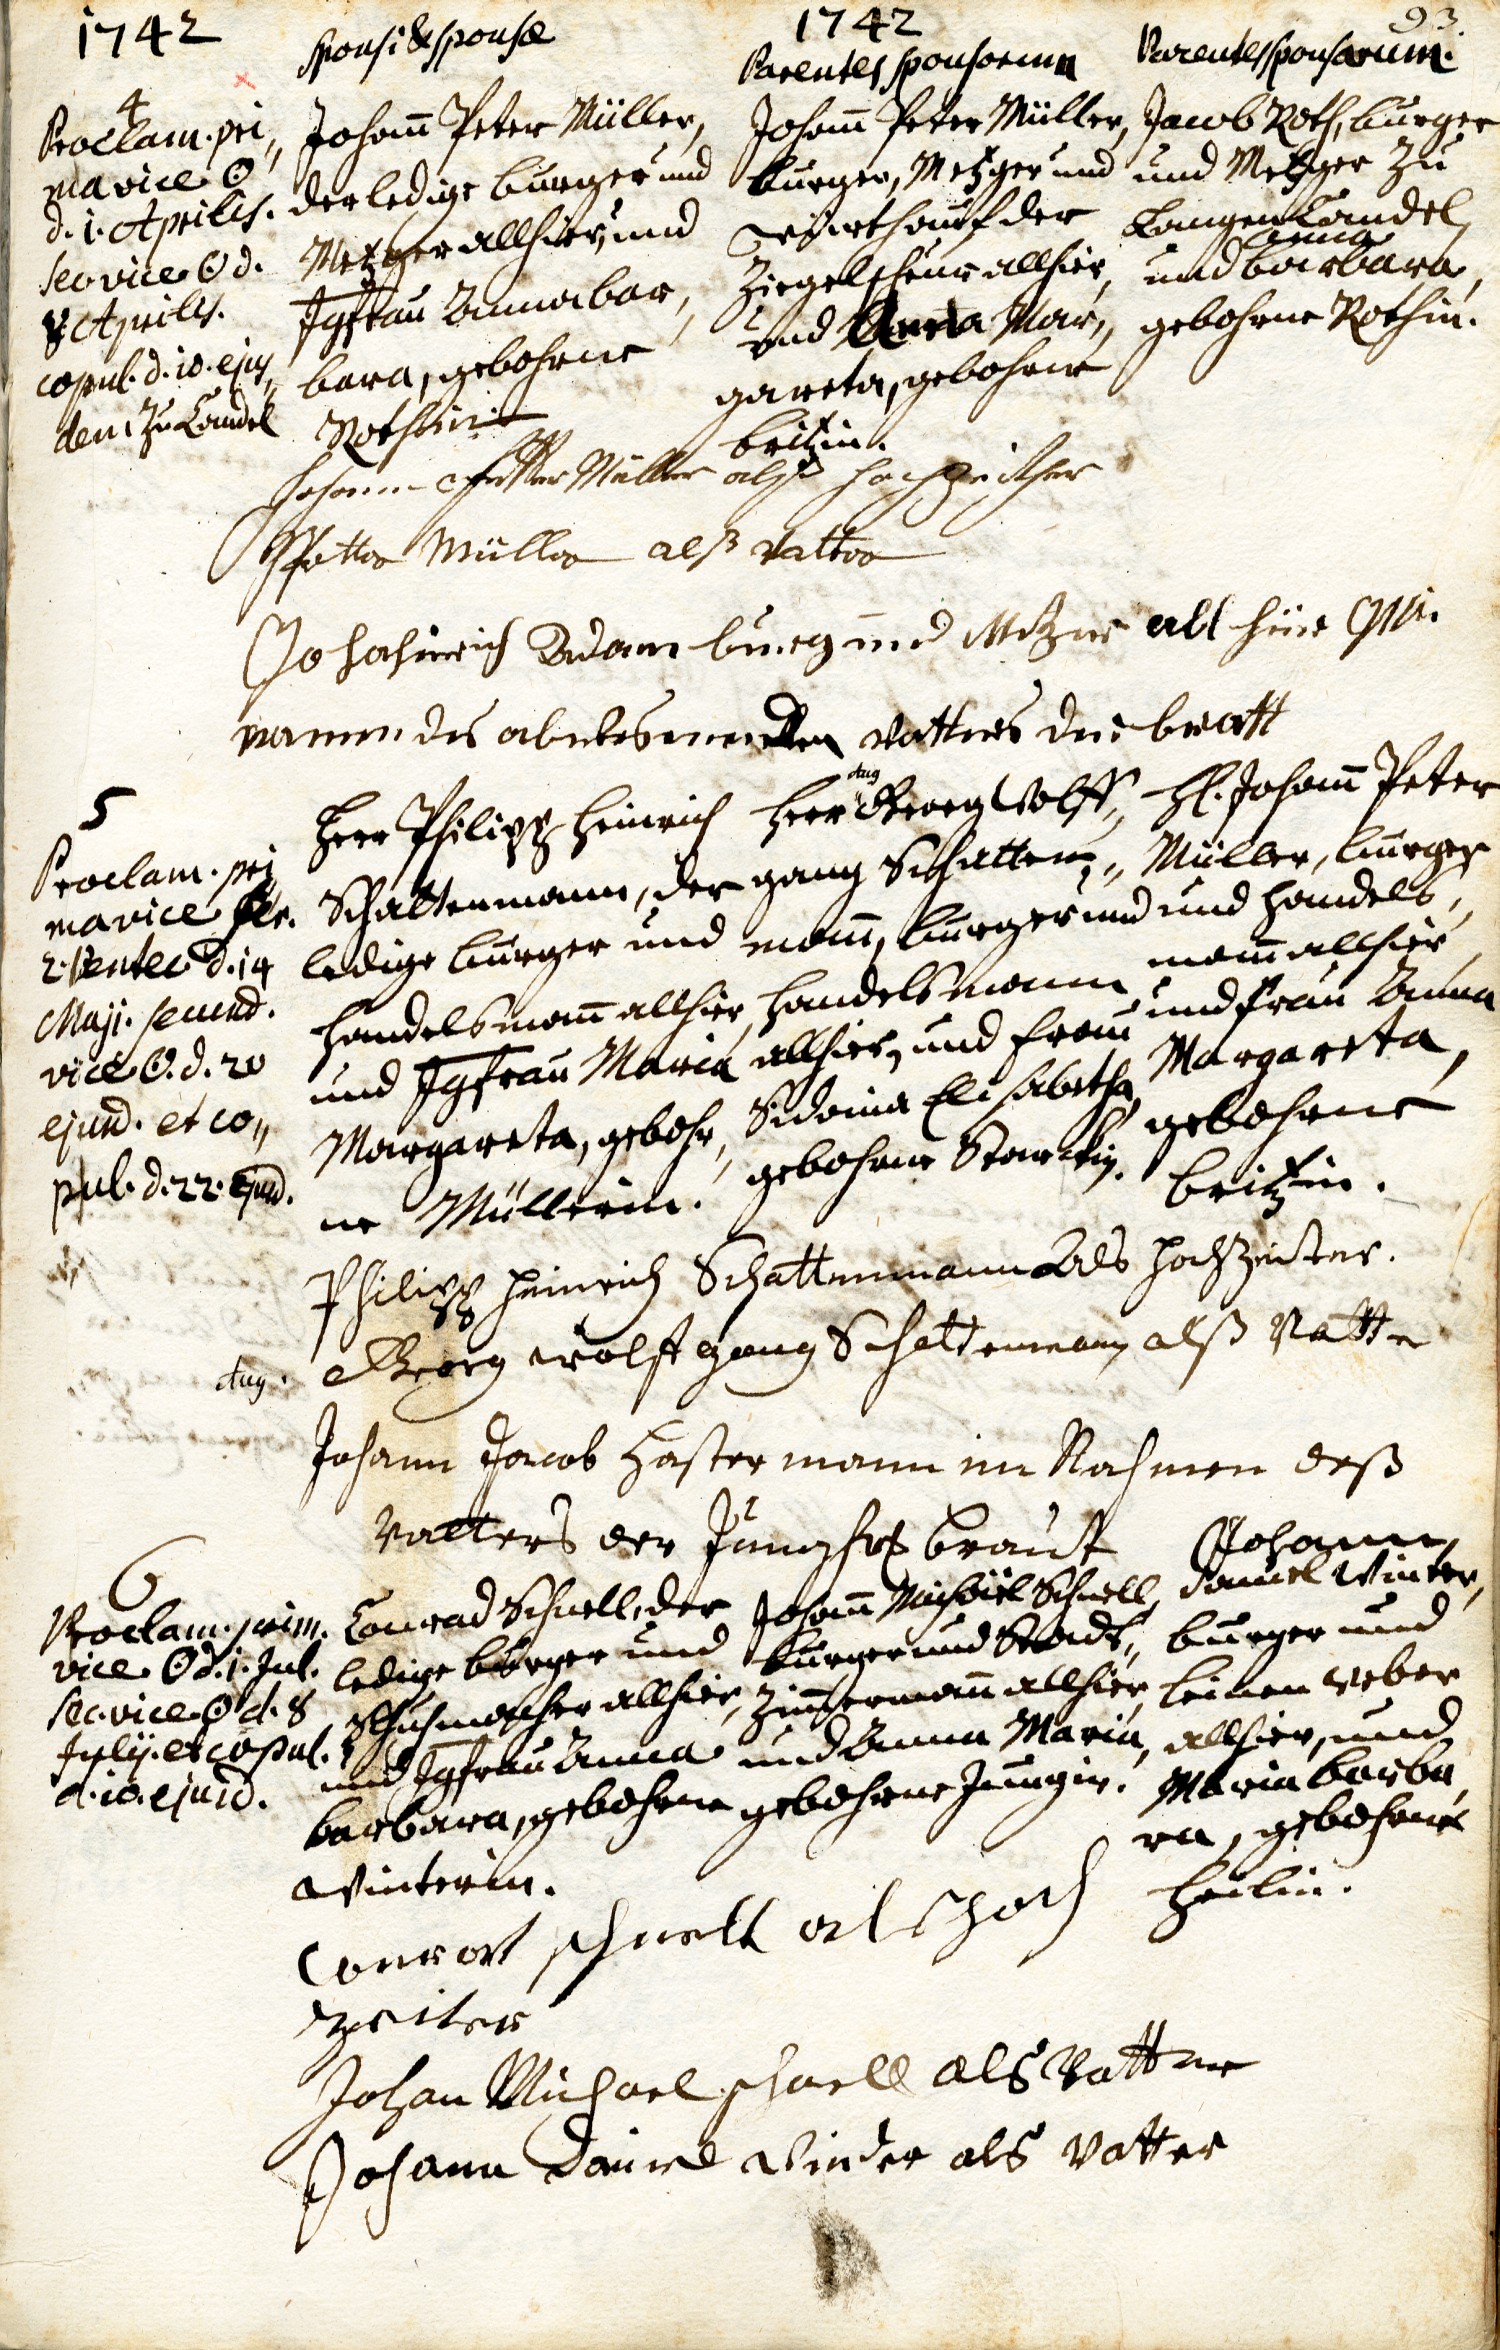 1742
sponsi & sponsæ
1742
93.
Parentes sponsorum
Parentes sponsarum.
4
Proclam. pri„
ma vice ☉
d. 1. Aprilis.
sec vice ☉ d.
8 Aprilis.
copul. d. 10. ejus„
dem zu Candel
Johann Peter Müller,
der ledige burger und
Metzger allhier, und
Jgfrau Anna bar„
bara, gebohrne
Rothin
Johann Peter Müller,
burger, Metzger und
Wirth auf der
Ziegelscheur allhier,
und Anna Mar„
gareta, gebohrne
britzin.
Jacob Roth, burger
und Metzger zu
Langen Candel,
anna
und barbara,
gebohrne Rothin.
Johann Petter Müller alß hochzeither
Petter Müller alß vatter
Joha hinrich Adam burg und Metzger all hier
namen des abwesenden vatters der braut
5
Proclam. pri
ma vice fer.
2. Pentec. d. 14
Maji. secund.
vice ☉. d. 20
ejusd. et co„
pul. d. 22. ejusd.
Herr Philipp Heinrich
Schattenmann, der
ledige burger und
handelsmann allhier,
und Jgfrau Maria
Margareta, gebohr„
ne Müllerin.
Aug
Herr Georg Wolff„
gang Schatten„
mann, burger und
handelsmann
allhier, und frau
Sidonia Elisabetha,
gebohrne Starckin.
H. Johann Peter
Müller, burger
und handels„
mann allhier,
und frau Anna
Margareta,
gebohrne
britzin.
Philipp Heinrich Schattenmann Als Hochzeiter.
Aug. Georg wolff gang Schattenmann alß Vatter
Johann Jacob Hastermann im Nahmen deß
Vatters der Jungfr braut
6
Proclam. prim.
vice ☉ d. 1. Jul.
sec. vice ☉ d. 8
Julij. et copul.
d. 10. ejusd.
Conrad Schnell, der
ledige burger und
Schuhmacher allhier,
und Jgfrau Anna
barbara, gebohrne
Winterin.
Johann Michael Schnell,
burger und Stadt„
Zimmermann allhier,
und Anna Maria,
gebohrne Jungin.
Johann
Daniel Winter,
burger und
leinen weber
allhier, und
Maria barba„
ra, gebohrne
Heilin.
Conrat schnell als hoch
zeiter
Johan Michael schnell als Vatter
Johann Daniel Winder als Vatter